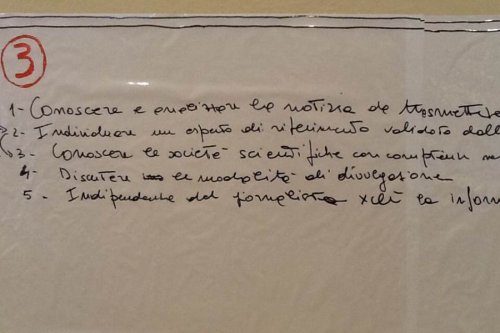 3
1- Conoscere e analizzare la notizia da trasmettere
2- Individuare un esperto di riferimento validato dall
3- Conoscere le società scientifiche con competenze
4- Discutere le modalità di divulgazione
5- Indipendenza del giornalista xchè la infor